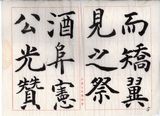 而矯翼
見之祭
酒岸憲
公光贊